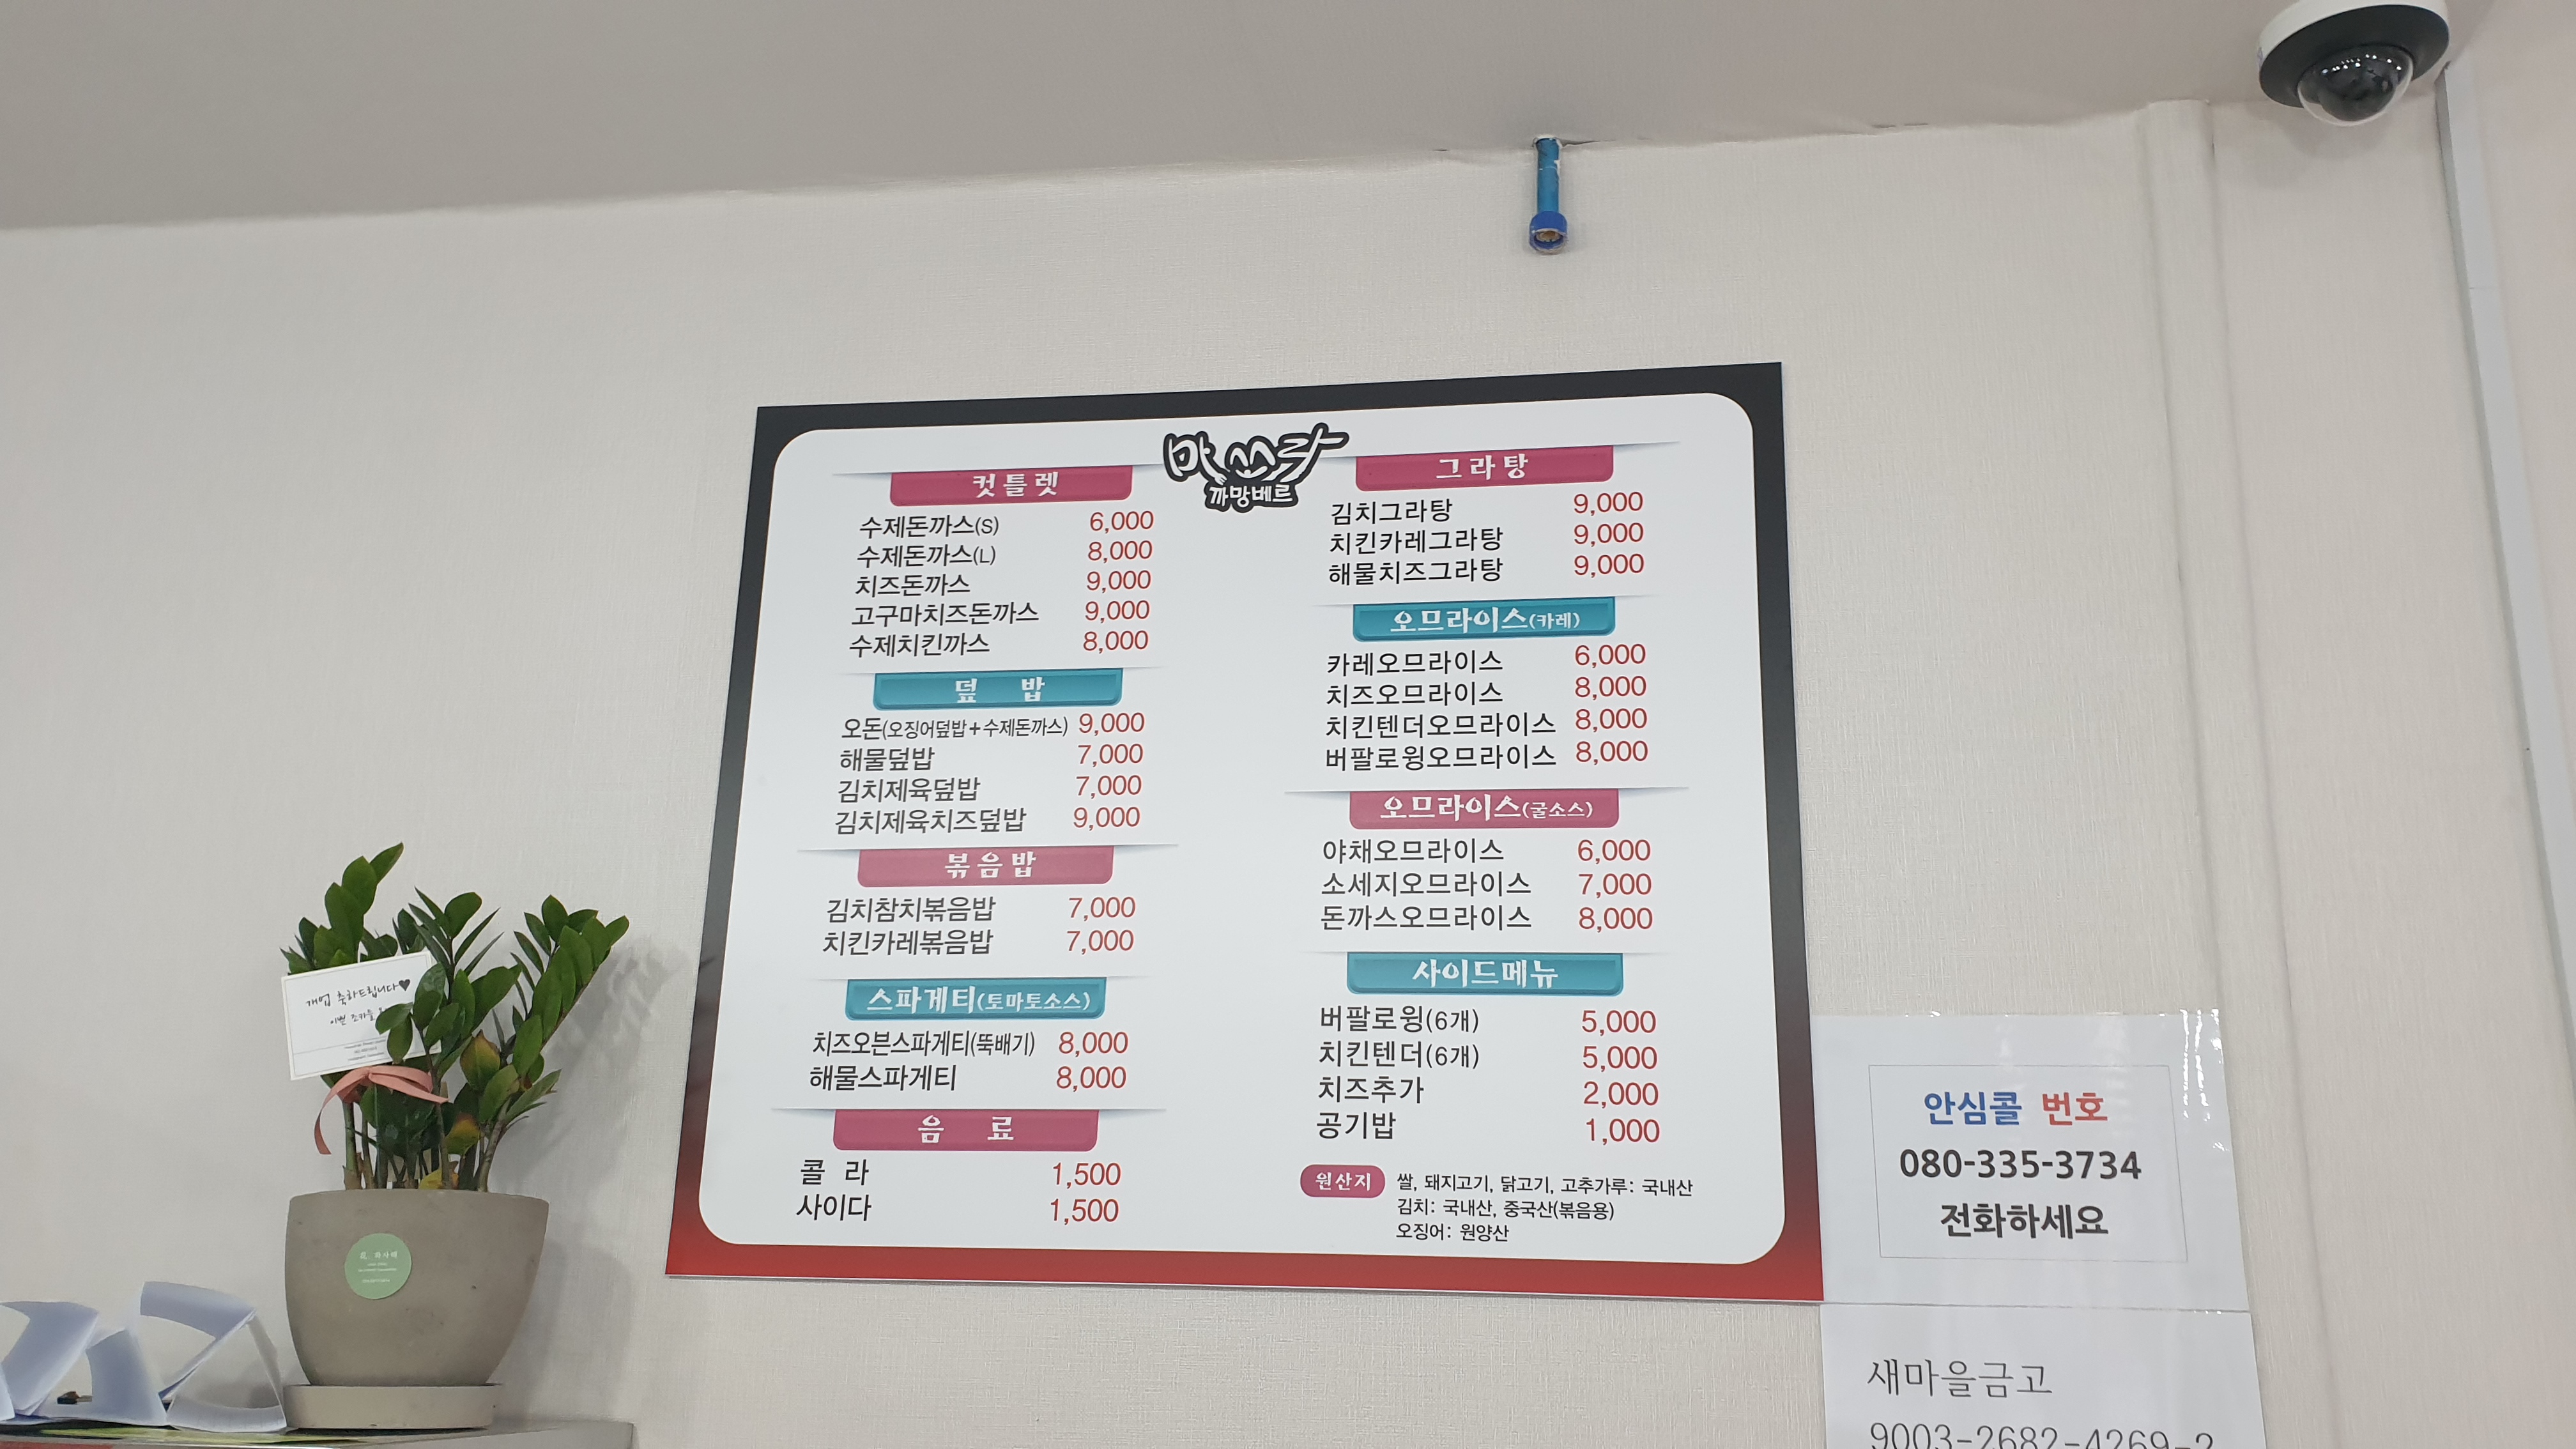 맛쓰라
까망베르
컷틀렛
수제돈까스(S) 6,000
수제돈까스(L) 8,000
치즈돈까스 9,000
고구마치즈돈까스 9,000
수제치킨까스 8,000
덮 밥
오돈(오징어덮밥+수제돈까스) 9,000
해물덮밥 7,000
김치제육덮밥 7,000
김치제육치즈덮밥 9,000
볶음밥
김치참치볶음밥 7,000
치킨카레볶음밥 7,000
스파게티(토마토소스)
치즈오븐스파게티(뚝배기) 8,000
해물스파게티 8,000
음 료
콜 라 1,500
사이다 1,500
그라탕
김치그라탕 9,000
치킨카레그라탕 9,000
해물치즈그라탕 9,000
오므라이스(카레)
카레오므라이스 6,000
치즈오므라이스 8,000
치킨텐더오므라이스 8,000
버팔로윙오므라이스 8,000
오므라이스(굴소스)
야채오므라이스 6,000
소세지오므라이스 7,000
돈까스오므라이스 8,000
사이드메뉴
버팔로윙(6개) 5,000
치킨텐더(6개) 5,000
치즈추가 2,000
공기밥 1,000
원산지 쌀, 돼지고기, 닭고기, 고추가루: 국내산
김치: 국내산, 중국산(볶음용)
오징어: 원양산
개업 축하드립니다♥
이쁜 조카들
안심콜 번호
080-335-3734
전화하세요
새마을금고
9003-2682-4269-2